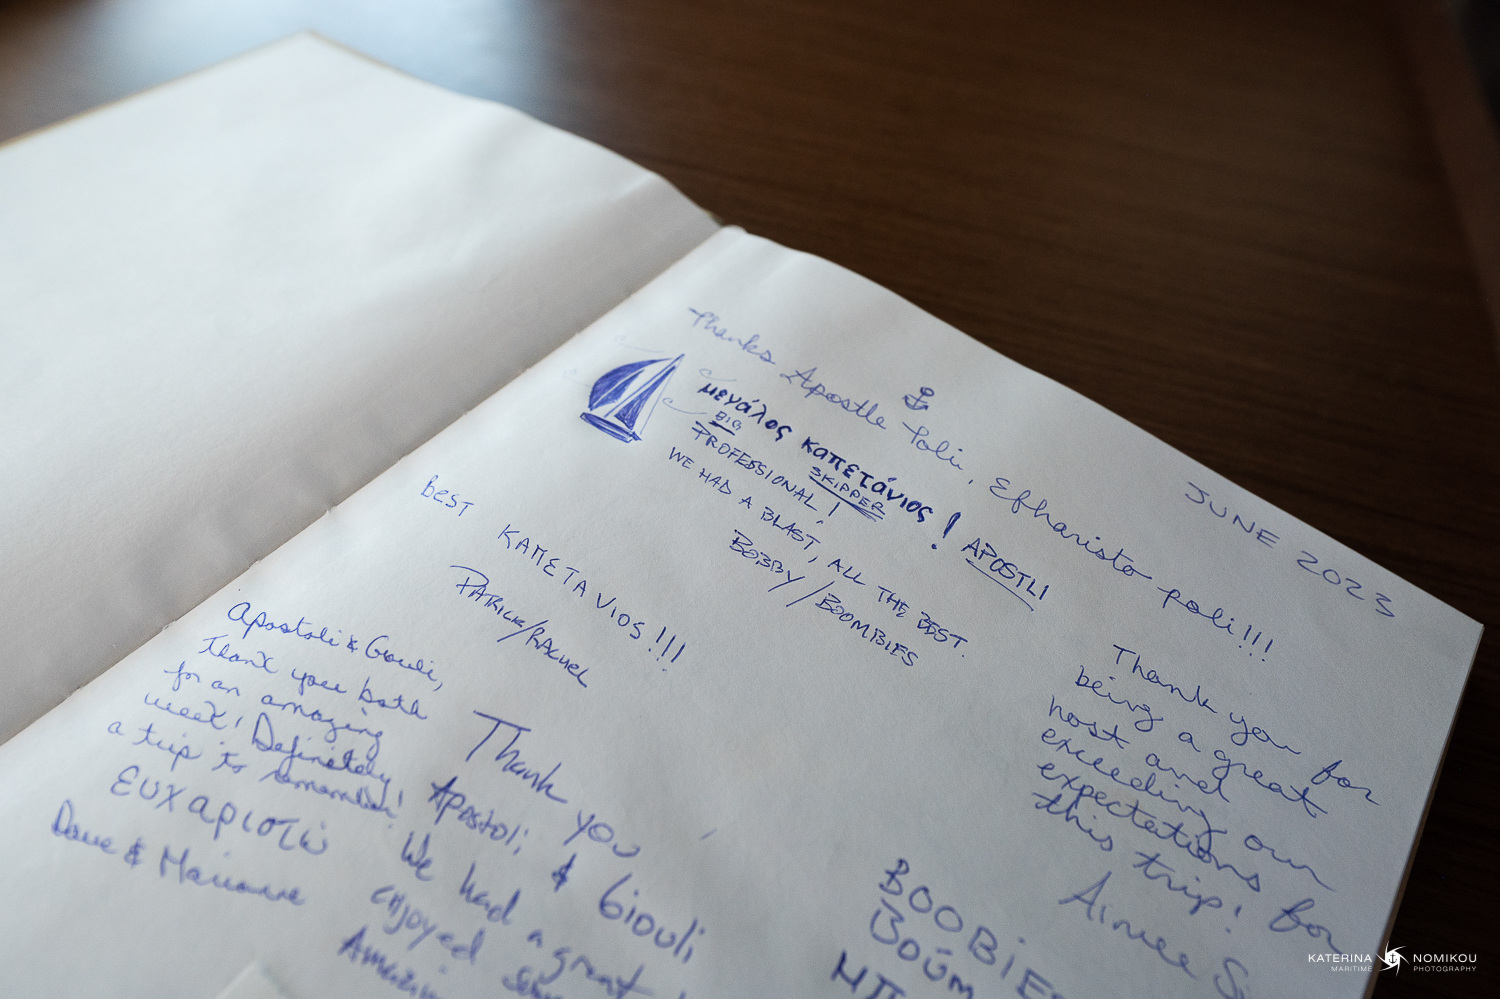 JUNE 2023
Thanks Apostle Poli, Efharisto poli!!!
μεγάλος καπετάνιος! APOSTLI
BIG SKIPPER
PROFESSIONAL!
WE HAD A BLAST, ALL THE BEST.
BOBBY/BOOMBIES
BEST ΚΑΠΕΤΑΝΙΟS!!!
PATRICK/RACHEL
Apostoli & Giouli,
Thank you both
for an amazing
week! Definitely
a trip to remember!
ΕΥΧαριστώ
Dave & Marianne
Thank you
Apostoli, & Giouli
We had a great
enjoyed
Thank you for
being a great
host and
exceeding our
expectations for
this trip!
Aimee
KATERINA NOMIKOU
MARITIME PHOTOGRAPHY